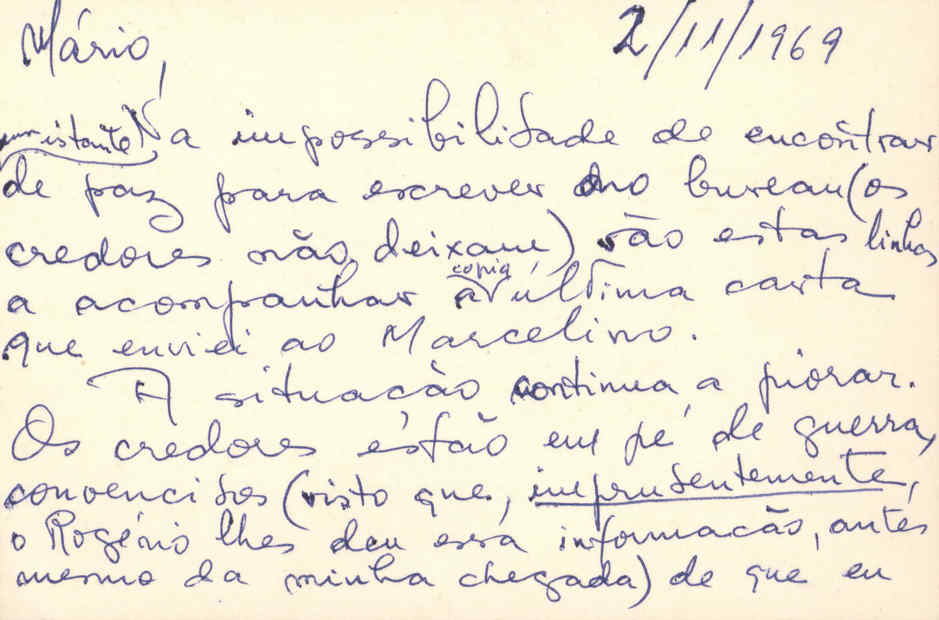 Mário,
2/11/1969
um istante
Na impossibilidade de encontrar
de paz para escrever no bureau (os
credores não deixam) vão estas linhas
copia
a acompanhar a última carta
que enviei ao Marcelino.
A situação continua a piorar.
Os credores estão em pé de guerra,
convencidos (visto que, imprudentemente,
o Rogério lhes deu essa informação, antes
mesmo da minha chegada) de que eu